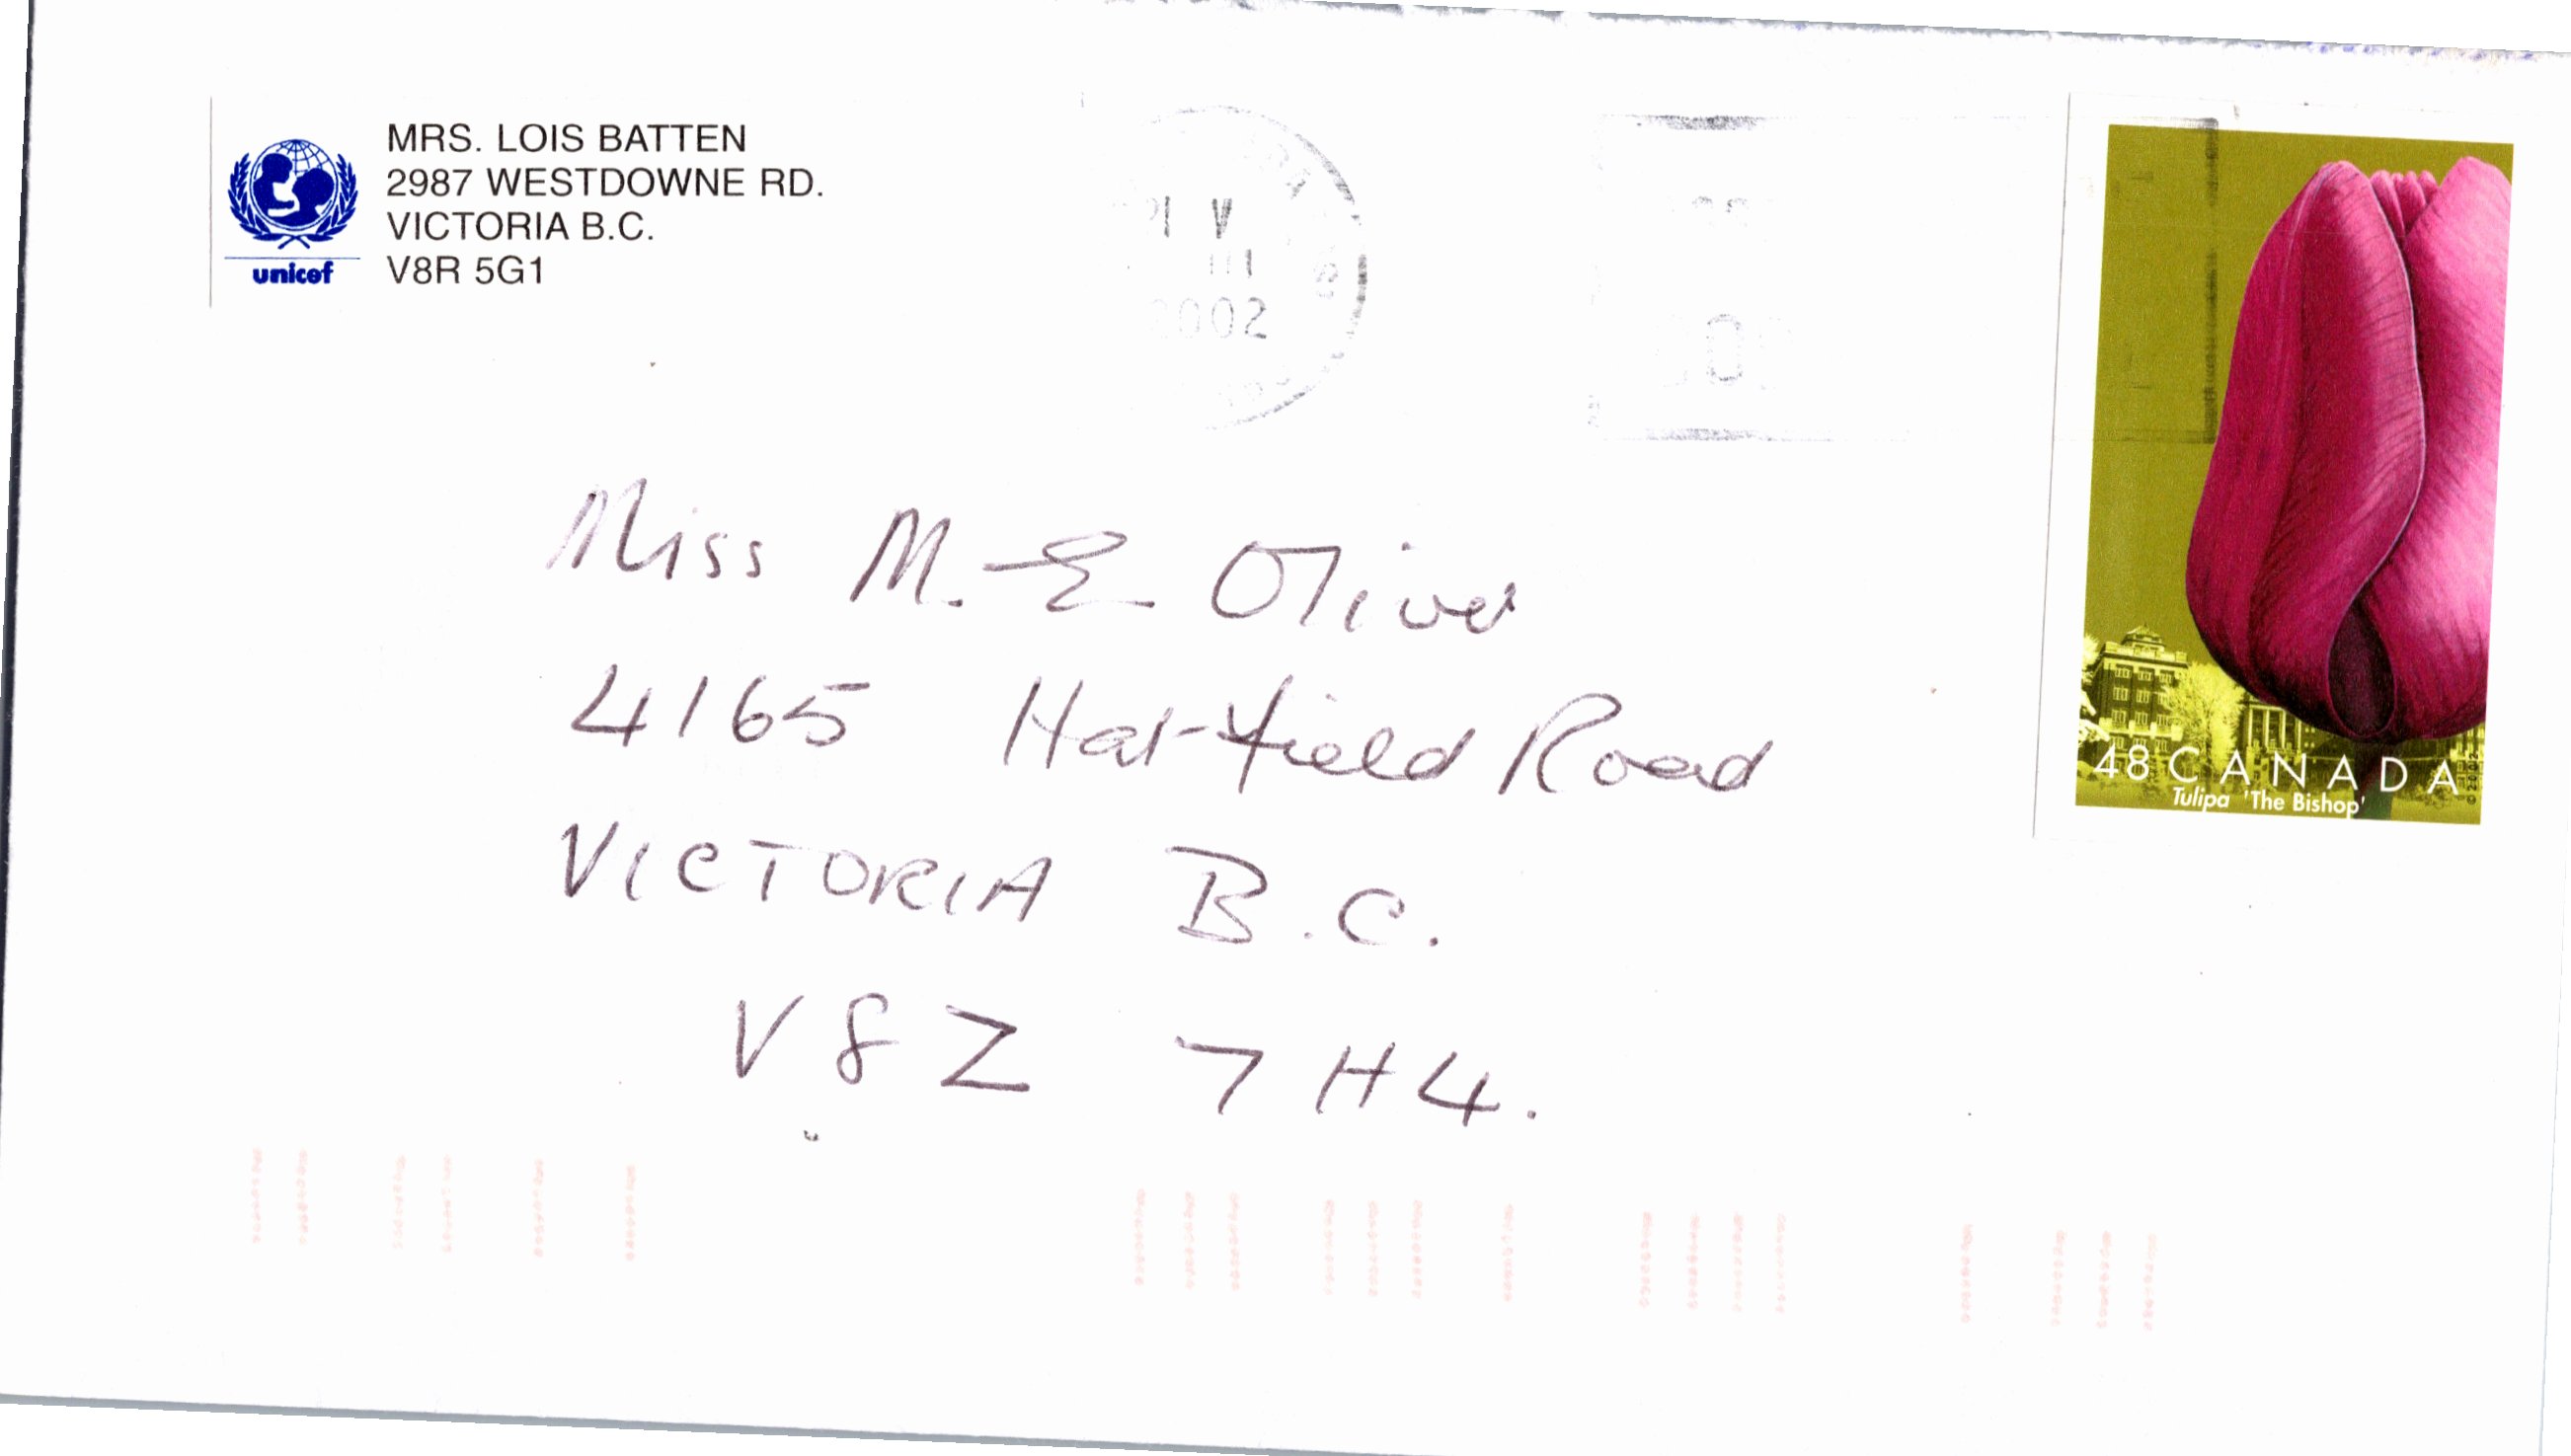 MRS. LOIS BATTEN
2987 WESTDOWNE RD.
VICTORIA B.C.
V8R 5G1
unicef
2002
Miss M. E Oliver
4165 Hatfield Road
VICTORIA B.C.
V8Z 7H4.
48 CANADA
Tulipa 'The Bishop'